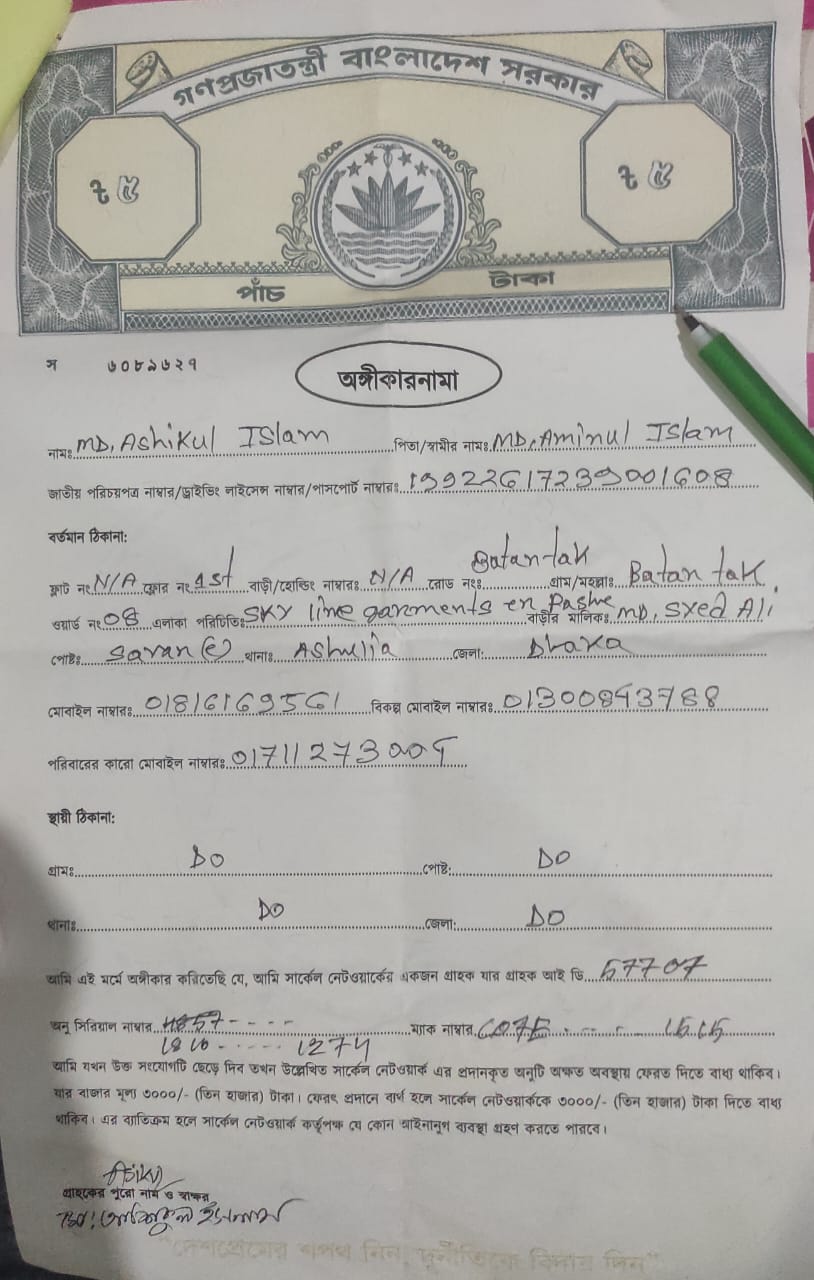 গণপ্রজাতন্ত্রী বাংলাদেশ সরকার
৳ ৫
৳ ৫
পাঁচ টাকা
স ৬০৮৯৬২৭
অঙ্গীকারনামা
নামঃ MD. Ashikul Islam পিতা/স্বামীর নামঃ MD. Aminul Islam
জাতীয় পরিচয়পত্র নাম্বার/ড্রাইভিং লাইসেন্স নাম্বার/পাসপোর্ট নাম্বারঃ 19922617239001608
বর্তমান ঠিকানা:
Batan tak
ফ্লাট নং N/A ফ্লোর নং 1st বাড়ী/হোল্ডিং নাম্বারঃ N/A রোড নংঃ গ্রাম/মহল্লাঃ Batan tak
ওয়ার্ড নং 08 এলাকা পরিচিতিঃ SKY line garments er Pashe বাড়ীর মালিকঃ MD. Syed Ali
পোষ্টঃ Savar থানাঃ Ashulia জেলা: Dhaka
মোবাইল নাম্বারঃ 01816169561 বিকল্প মোবাইল নাম্বারঃ 01300843788
পরিবারের কারো মোবাইল নাম্বারঃ
স্থায়ী ঠিকানা:
গ্রামঃ DO পোষ্ট: DO
থানাঃ DO জেলা: DO
আমি এই মর্মে অঙ্গীকার করিতেছি যে, আমি সার্কেল নেটওয়ার্কের একজন গ্রাহক যার গ্রাহক আই ডি 57707
অনু সিরিয়াল নাম্বার ম্যাক নাম্বার
1274
আমি যখন উক্ত সংযোগটি ছেড়ে দিব তখন উল্লেখিত সার্কেল নেটওয়ার্ক এর প্রদানকৃত অনুটি অক্ষত অবস্থায় ফেরত দিতে বাধ্য থাকিব।
যার বাজার মূল্য ৩০০০/- (তিন হাজার) টাকা। ফেরৎ প্রদানে ব্যর্থ হলে সার্কেল নেটওয়ার্ককে ৩০০০/- (তিন হাজার) টাকা দিতে বাধ্য
থাকিব। এর ব্যতিক্রম হলে সার্কেল নেটওয়ার্ক কর্তৃপক্ষ যে কোন আইনানুগ ব্যবস্থা গ্রহণ করতে পারবে।
Asikul
গ্রাহকের পুরো নাম ও স্বাক্ষর
মোঃ আশিকুল ইসলাম
"দেশপ্রেমের শপথ নিন, দুর্নীতিকে বিদায় দিন"